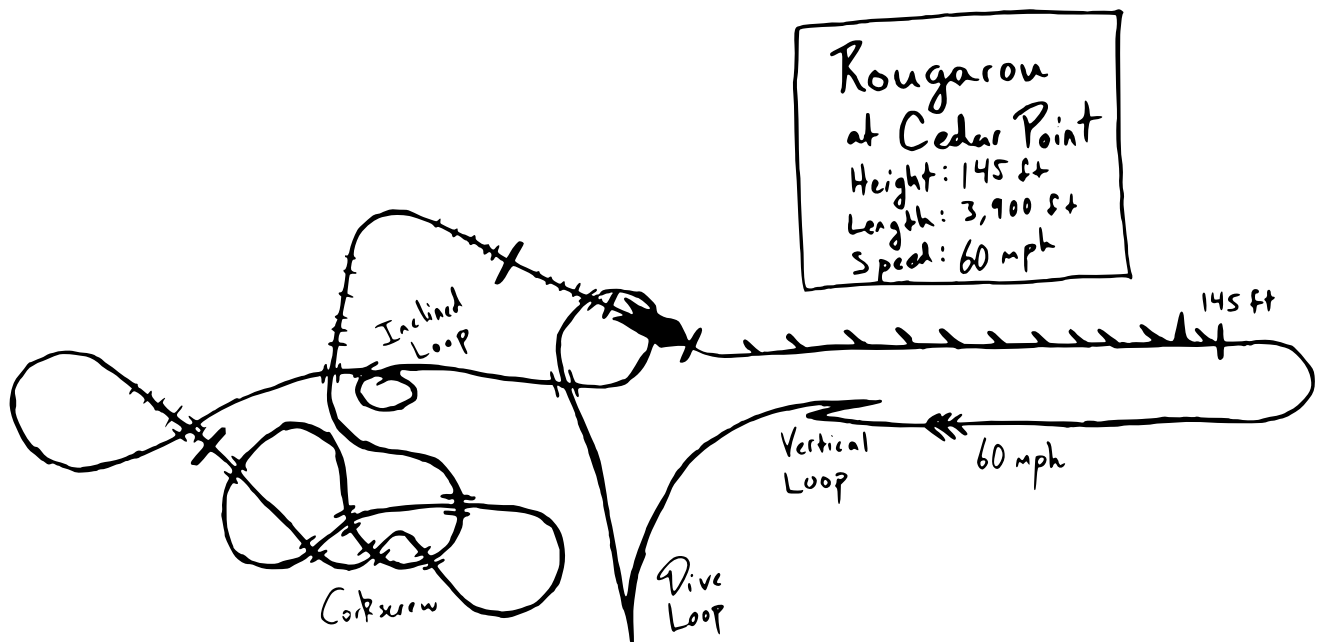 Rougarou
at Cedar Point
Height: 145 ft
Length: 3,900 ft
Speed: 60 mph
145 ft
Inclined
Loop
Vertical
Loop
60 mph
Dive
Loop
Corkscrew